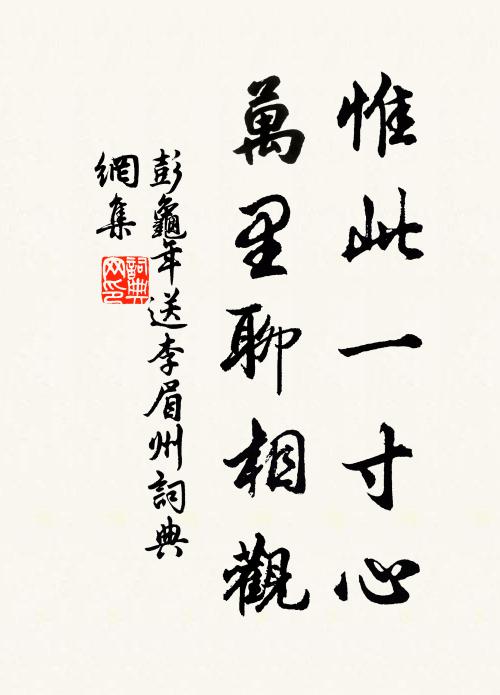 惟此一寸心
萬里聊相觀
彭龜年送李眉州詞典
網集
詞典
网印